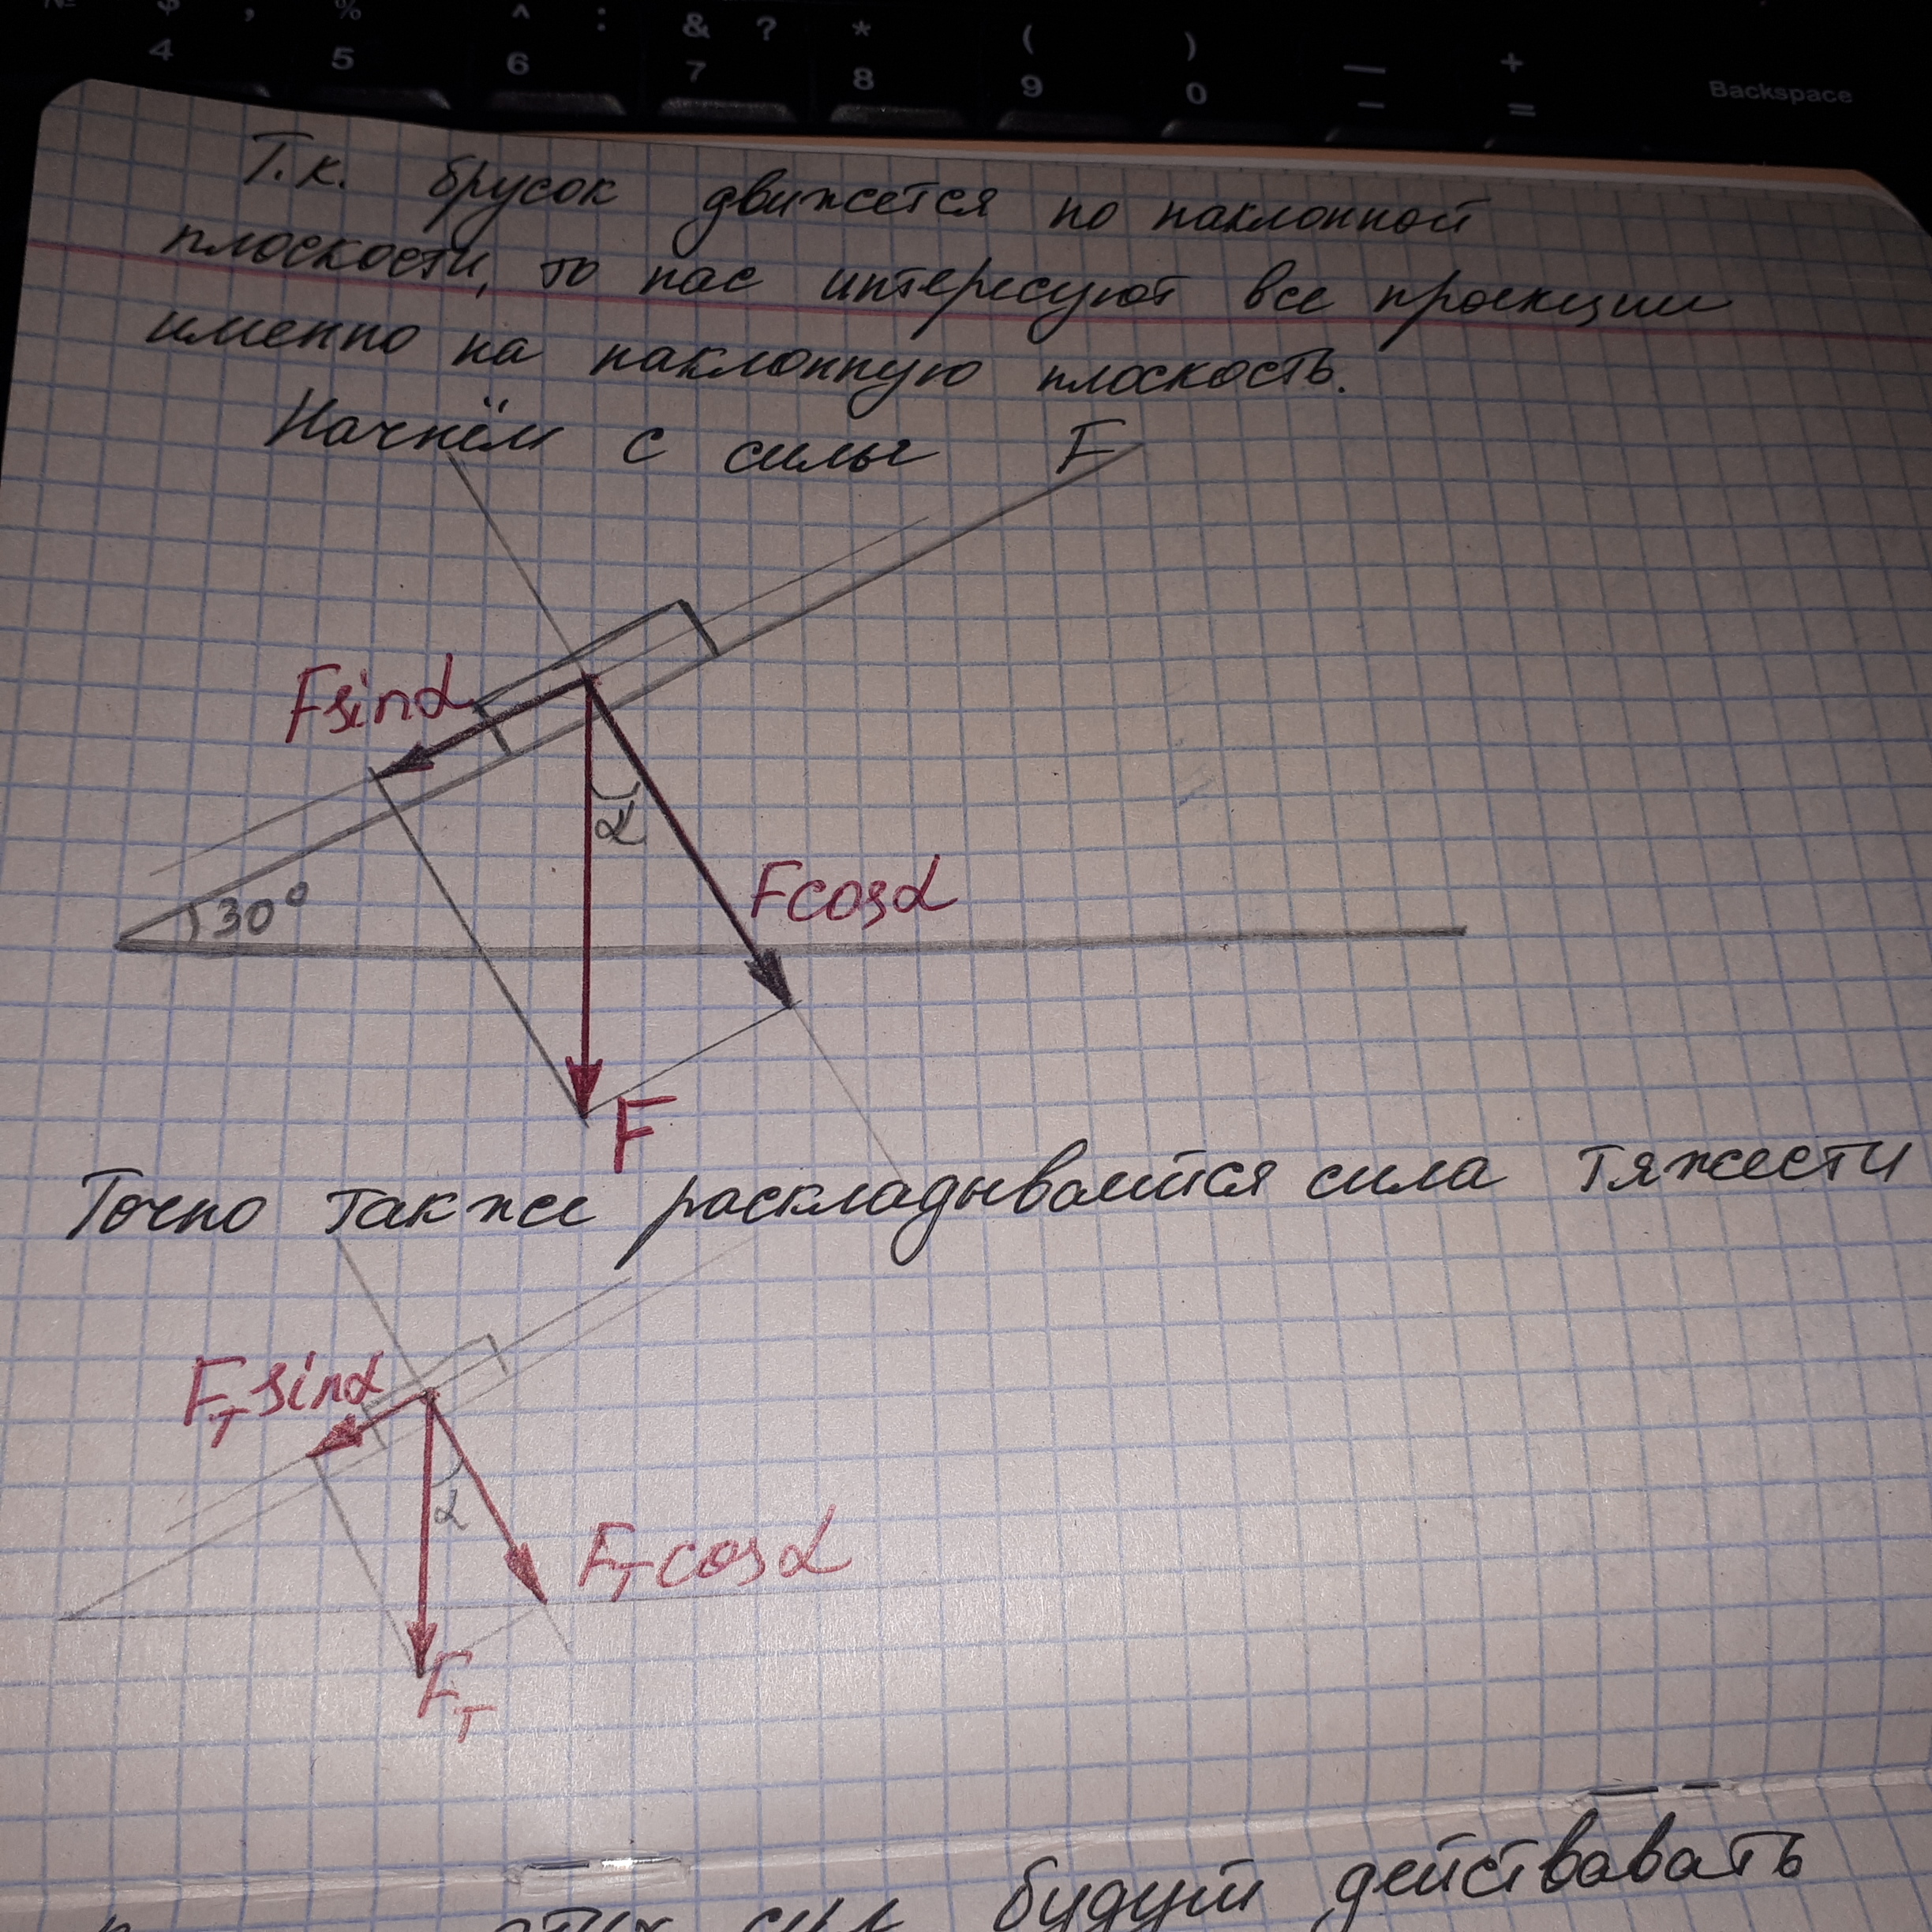 4 5 6 7 8 9 0 — +
% ^ : & ? * ( ) _ =
Backspace
Т.к. брусок движется по наклонной
плоскости, то нас интересуют все проекции
именно на наклонную плоскость.
Начнём с силы F
Fsinα
α
Fcosα
30°
F
Точно также раскладывается сила тяжести
Fтsinα
α
Fтcosα
Fт
сил будут действавать